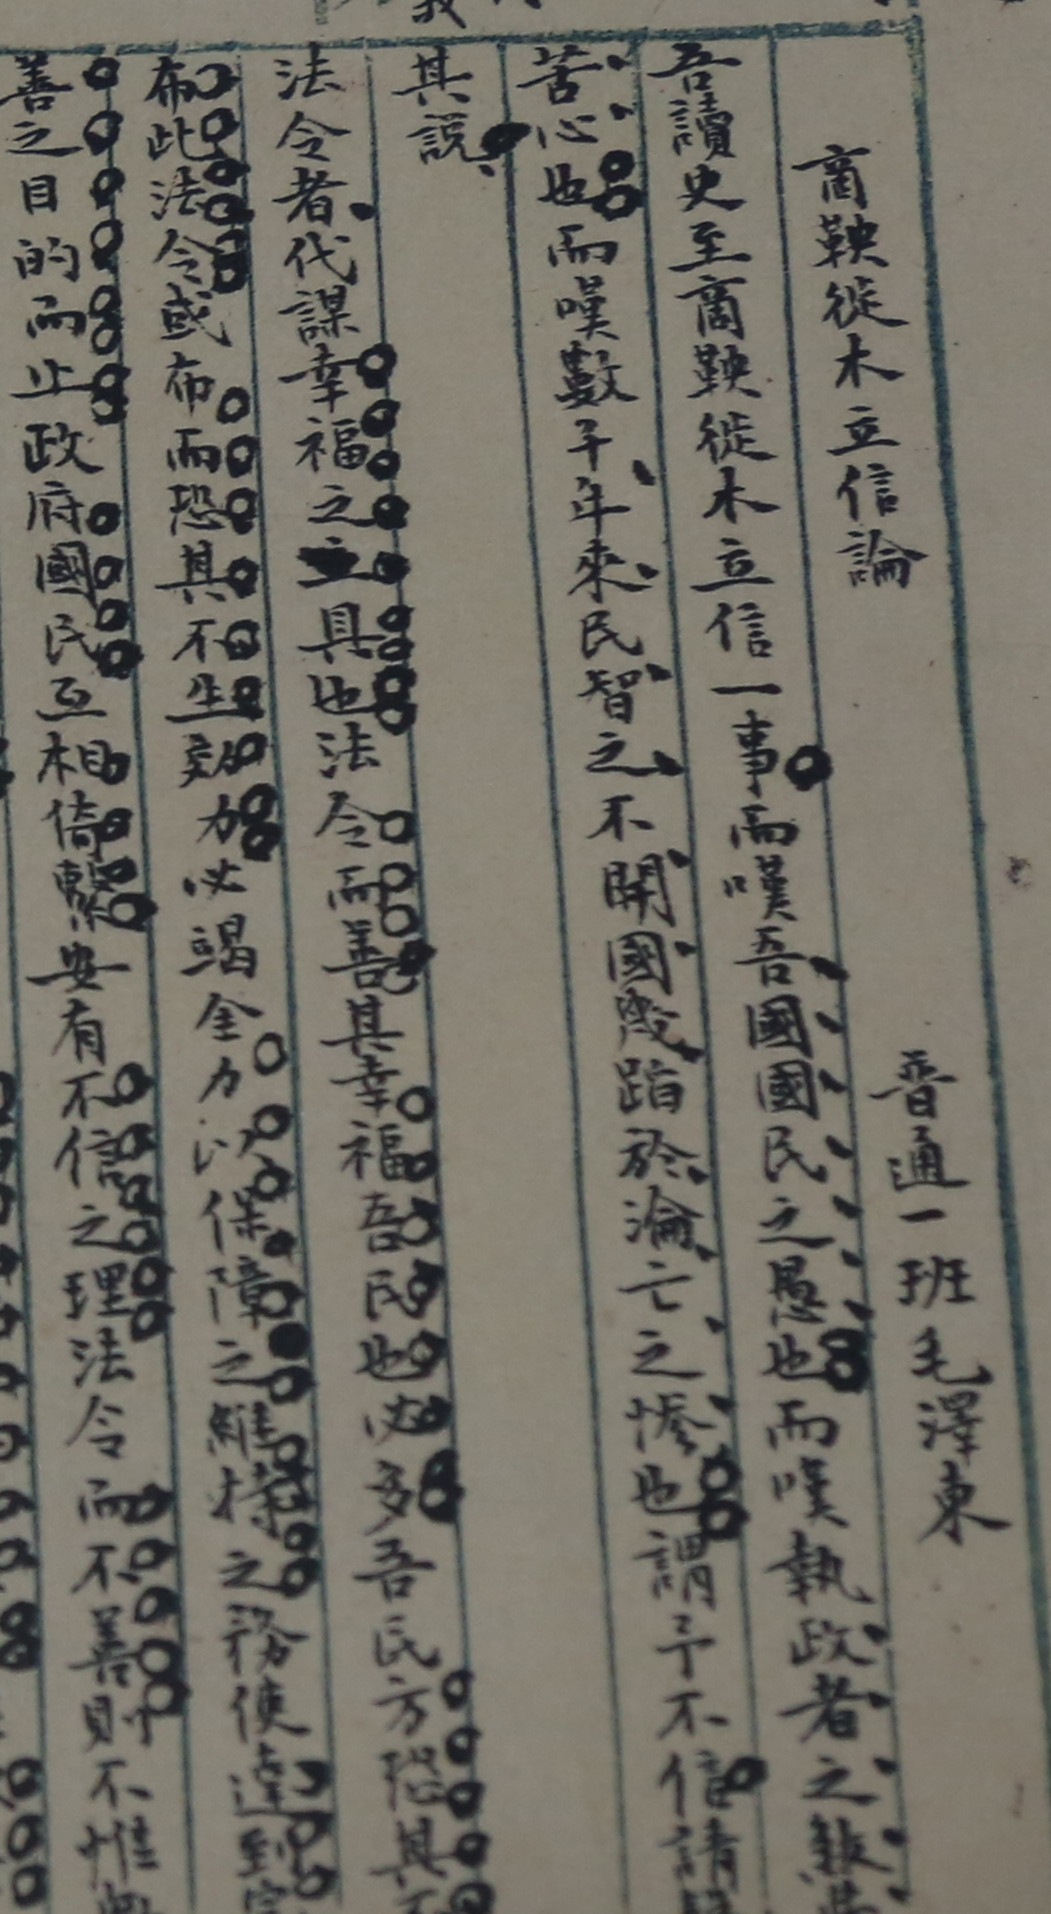 商鞅徙木立信論
普通一班毛澤東
吾讀史至商鞅徙木立信一事而嘆吾國國民之愚也而嘆執政者之煞費
苦心也而嘆數千年來民智之不開國幾蹈於淪亡之慘也謂予不信請
其說
法令者代謀幸福之具也法令而善其幸福吾民也必多吾民方恐其不
布此法令或布而恐其不生效力必竭全力以保障之維持之務使達到完
善之目的而止政府國民互相倚繫安有不信之理法令而不善則不惟